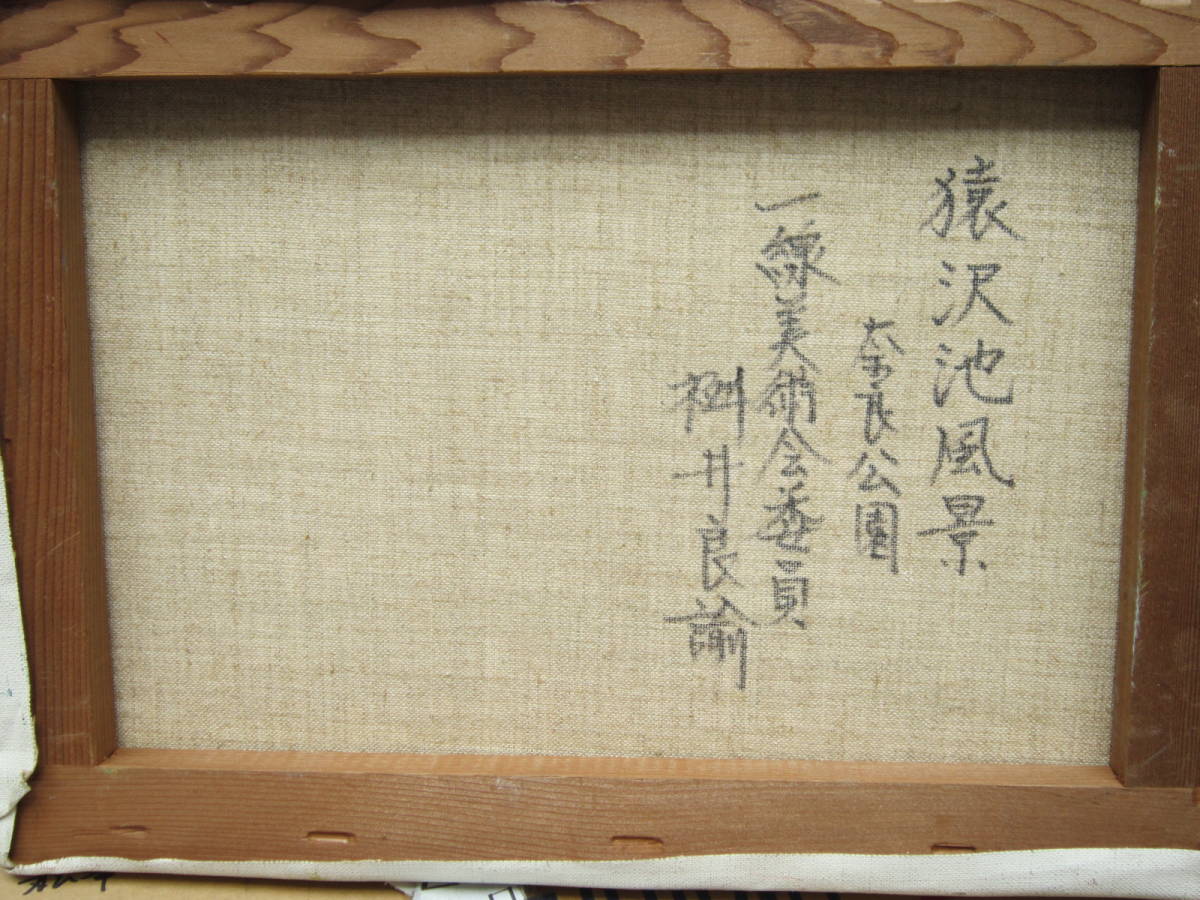 猿沢池風景
奈良公園
一線美術会委員
桝井良諭